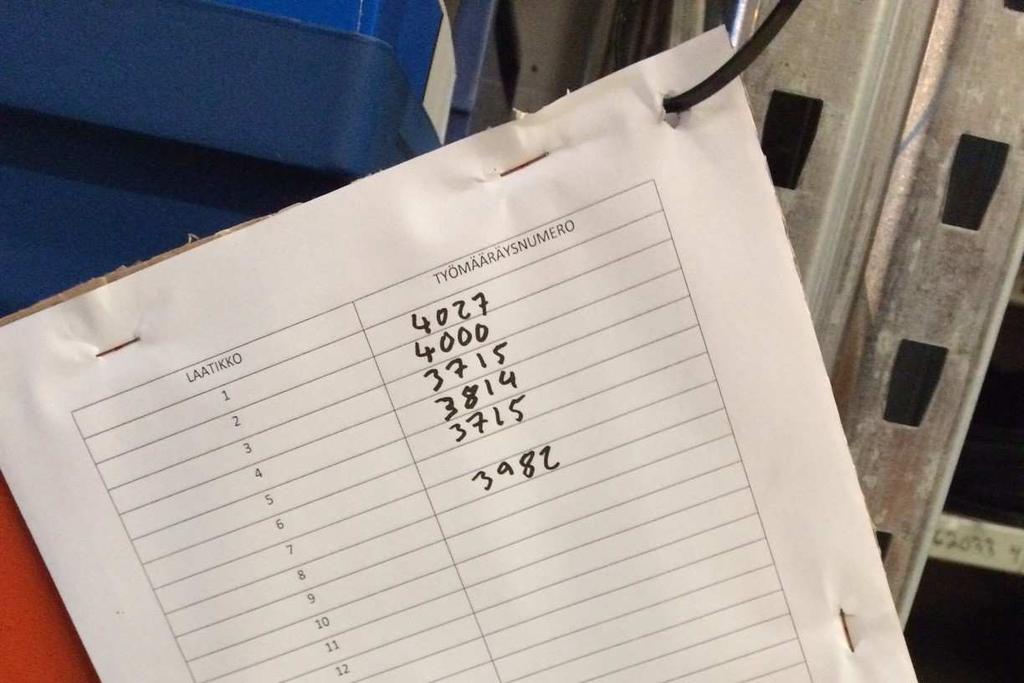 LAATIKKO TYÖMÄÄRÄYSNUMERO
1 4027
2 4000
3 3715
4 3814
5 3715
6
7 3982
8
9
10
11
12